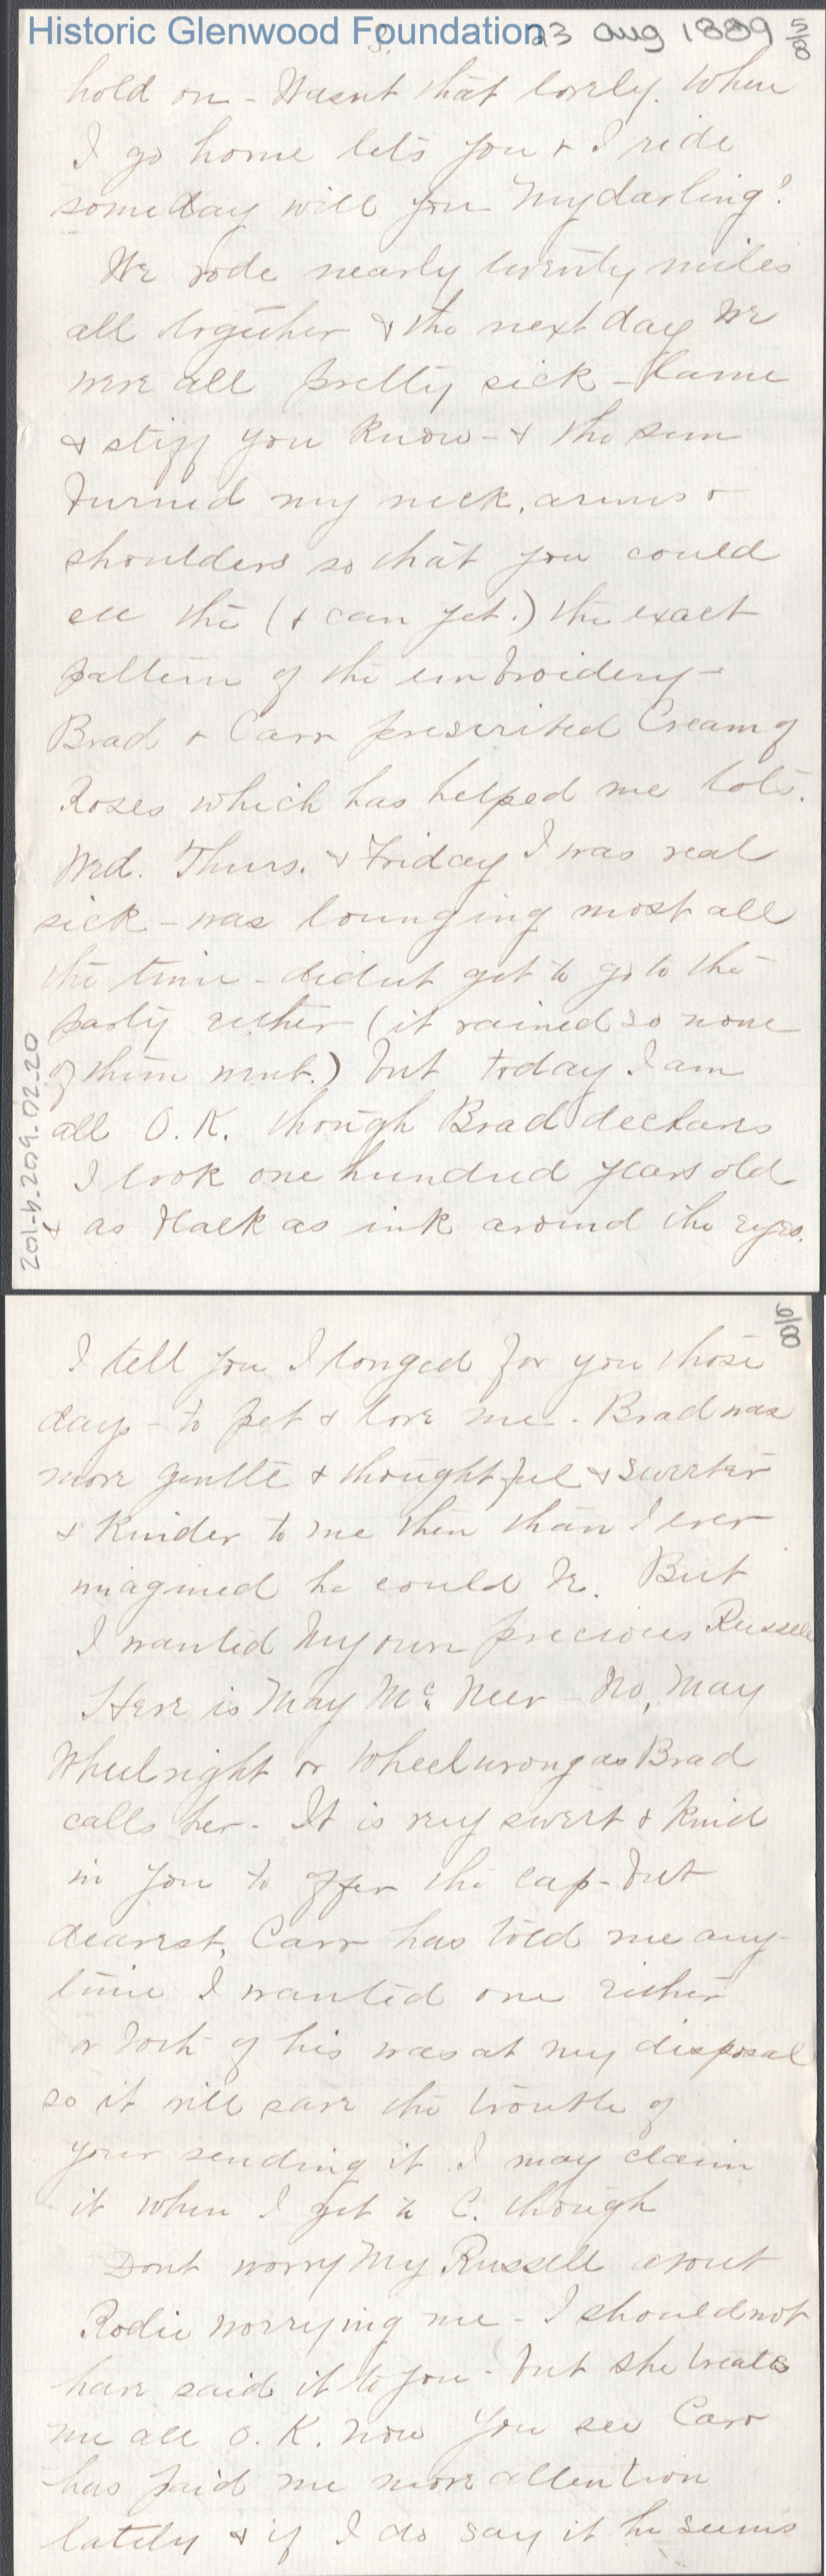 Historic Glenwood Foundation
23 Aug 1889
5/8
hold on - Wasnt that lovely. When
I go home lets you & I ride
someday will you my darling?
We rode nearly twenty miles
all together & the next day we
were all pretty sick - lame
& stiff you know - & the sun
burned my neck, arms &
shoulders so that you could
see the (& can yet.) the exact
pattern of the embroidery -
Brad & Carr prescribed Cream of
Roses which has helped me lots.
Wed. Thurs. & Friday I was real
sick - was lounging most all
the time - didnt get to go to the
party either - (it rained so none
of them went.) but today I am
all O.K. though Brad declares
I look one hundred years old
& as black as ink around the eyes.
201-b.2019.02.20
6/8
I tell you I longed for you those
days - to pet & love me. Brad was
more gentle & thoughtful & sweeter
& kinder to me then than I ever
imagined he could be. But
I wanted my own precious Russell
Here is May Mc Neer - No, May
Wheelright or Wheelwrong as Brad
calls her. It is very sweet & kind
in you to offer the cap - but
dearest, Carr has told me any-
time I wanted one either
or both of his was at my disposal
so it will save the trouble of
your sending it I may claim
it when I get to C. though
Dont worry my Russell about
Rodie worrying me - I should not
have said it to you - but she treats
me all O.K. now You see Carr
has paid me more attention
lately & if I do say it he seems